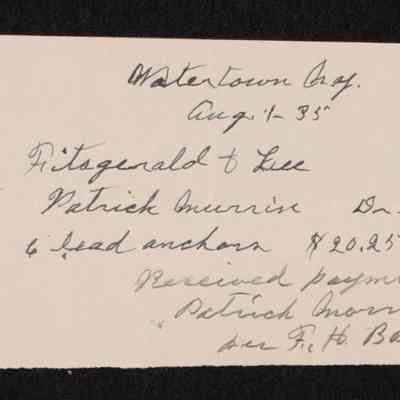 Watertown N.Y.
Aug. 1 - 35
Fitzgerald & Lee
Patrick Murrin Dr.
6 lead anchors $20.25
Received payme
Patrick
per F. H. Ba